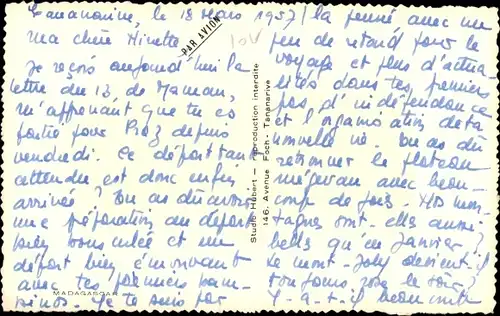 Tananarive, le 18 Mars 1957
PAR AVION
Ma chère Minette
Je reçois aujourd'hui la
lettre du 13 de Maman,
m'apprenant que tu es
partie pour Praz depuis
vendredi. Ce départ tant
attendu est donc enfin
arrivé ? Tu as dû avoir
une préparation au départ
bien bousculée et un
départ bien émouvant
avec tes premiers pam-
Je te suis par
MADAGASCAR
Studio Hubert — Reproduction interdite
146, Avenue Foch - Tananarive
la pensée avec un
peu de retard pour le
voyage et plus d'actua
lités dans tes premiers
pas d'indépendance
et l'organisation de ta
nouvelle vie. Tu as dû
retrouver le plateau
mégevan avec beau-
coup de joie. Nos mon-
tagnes sont-elles aussi
belles qu'en Janvier ?
Le mont-Joly devient-il
toujours rose le soir ?
Y-a-t-il beaucoup